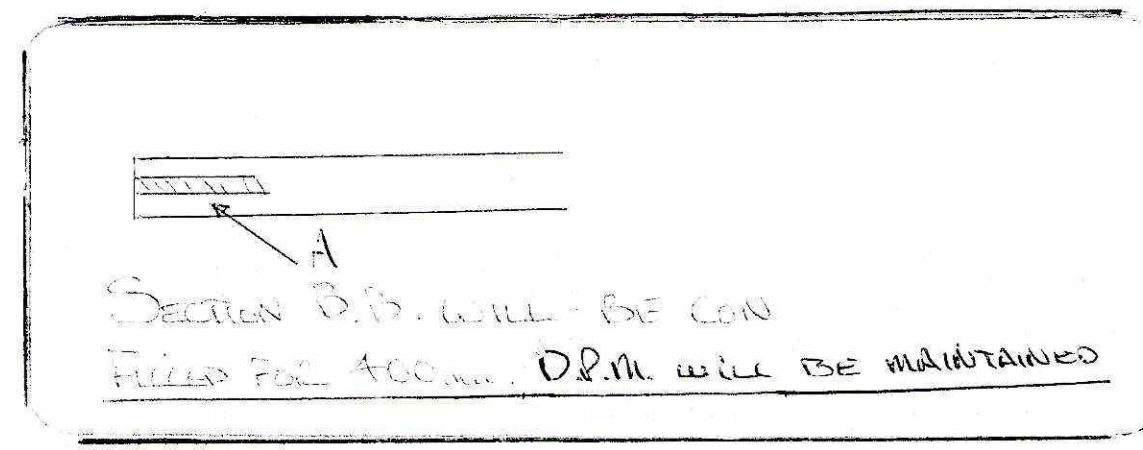 A
SECTION B.B. WILL BE CON
FILLED FOR 400mm. D.P.M. WILL BE MAINTAINED